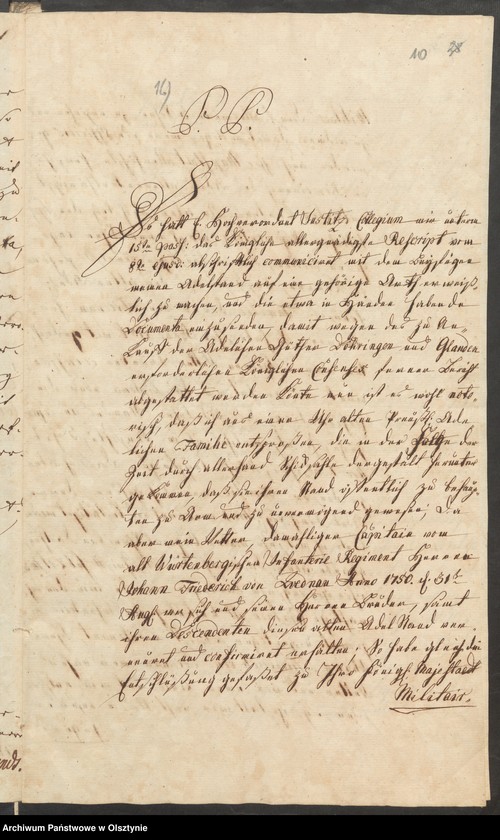 10 28
16)
P. P.
Es hatt E. Hochverordnet Justitz Collegium mir unterm
15ten pass: das Königliche allergnädigste Rescript vom
8ten ejusd: abschriftlich communiciret mit dem Beyfügen
meinen Adelstand auf eine gehörige Arth erweiß-
lich zu machen, und die etwa in Händen habende
Documenta einzusenden, damit wegen des zu An-
kauff der Adelichen Güther Döhringen und Glanden
erforderlichen Königlichen Consenses ferner Bericht
abgestattet werden könte nun ist es wohl noto-
risch, daß ich aus einer Uhr alten Preußsch: Ade-
lichen Familie entsproßen, die in der Folge der
Zeit durch allerhand Schicksahle dergestalt herunter
gekommen, daß sie ihren Stand öffentlich zu behaup-
ten zu Arm und zu unvermögend gewesen; Da
aber mein Vetter damahliger Capitain vom
alt Würtenbergischen Infanterie Regiment Herr
Johann Friederich von Anno 1750. d. 31t
Aug. vor sich und seinen Herren Bruder, samt
ihren Descendenten diesen alten Adel Stand ver-
neuert und confirmiret erhalten; So habe gleich die
Entschlüßung gefaßet zu Ihro Königl. Majestaet
Militair-
Archiwum Państwowe w Olsztynie